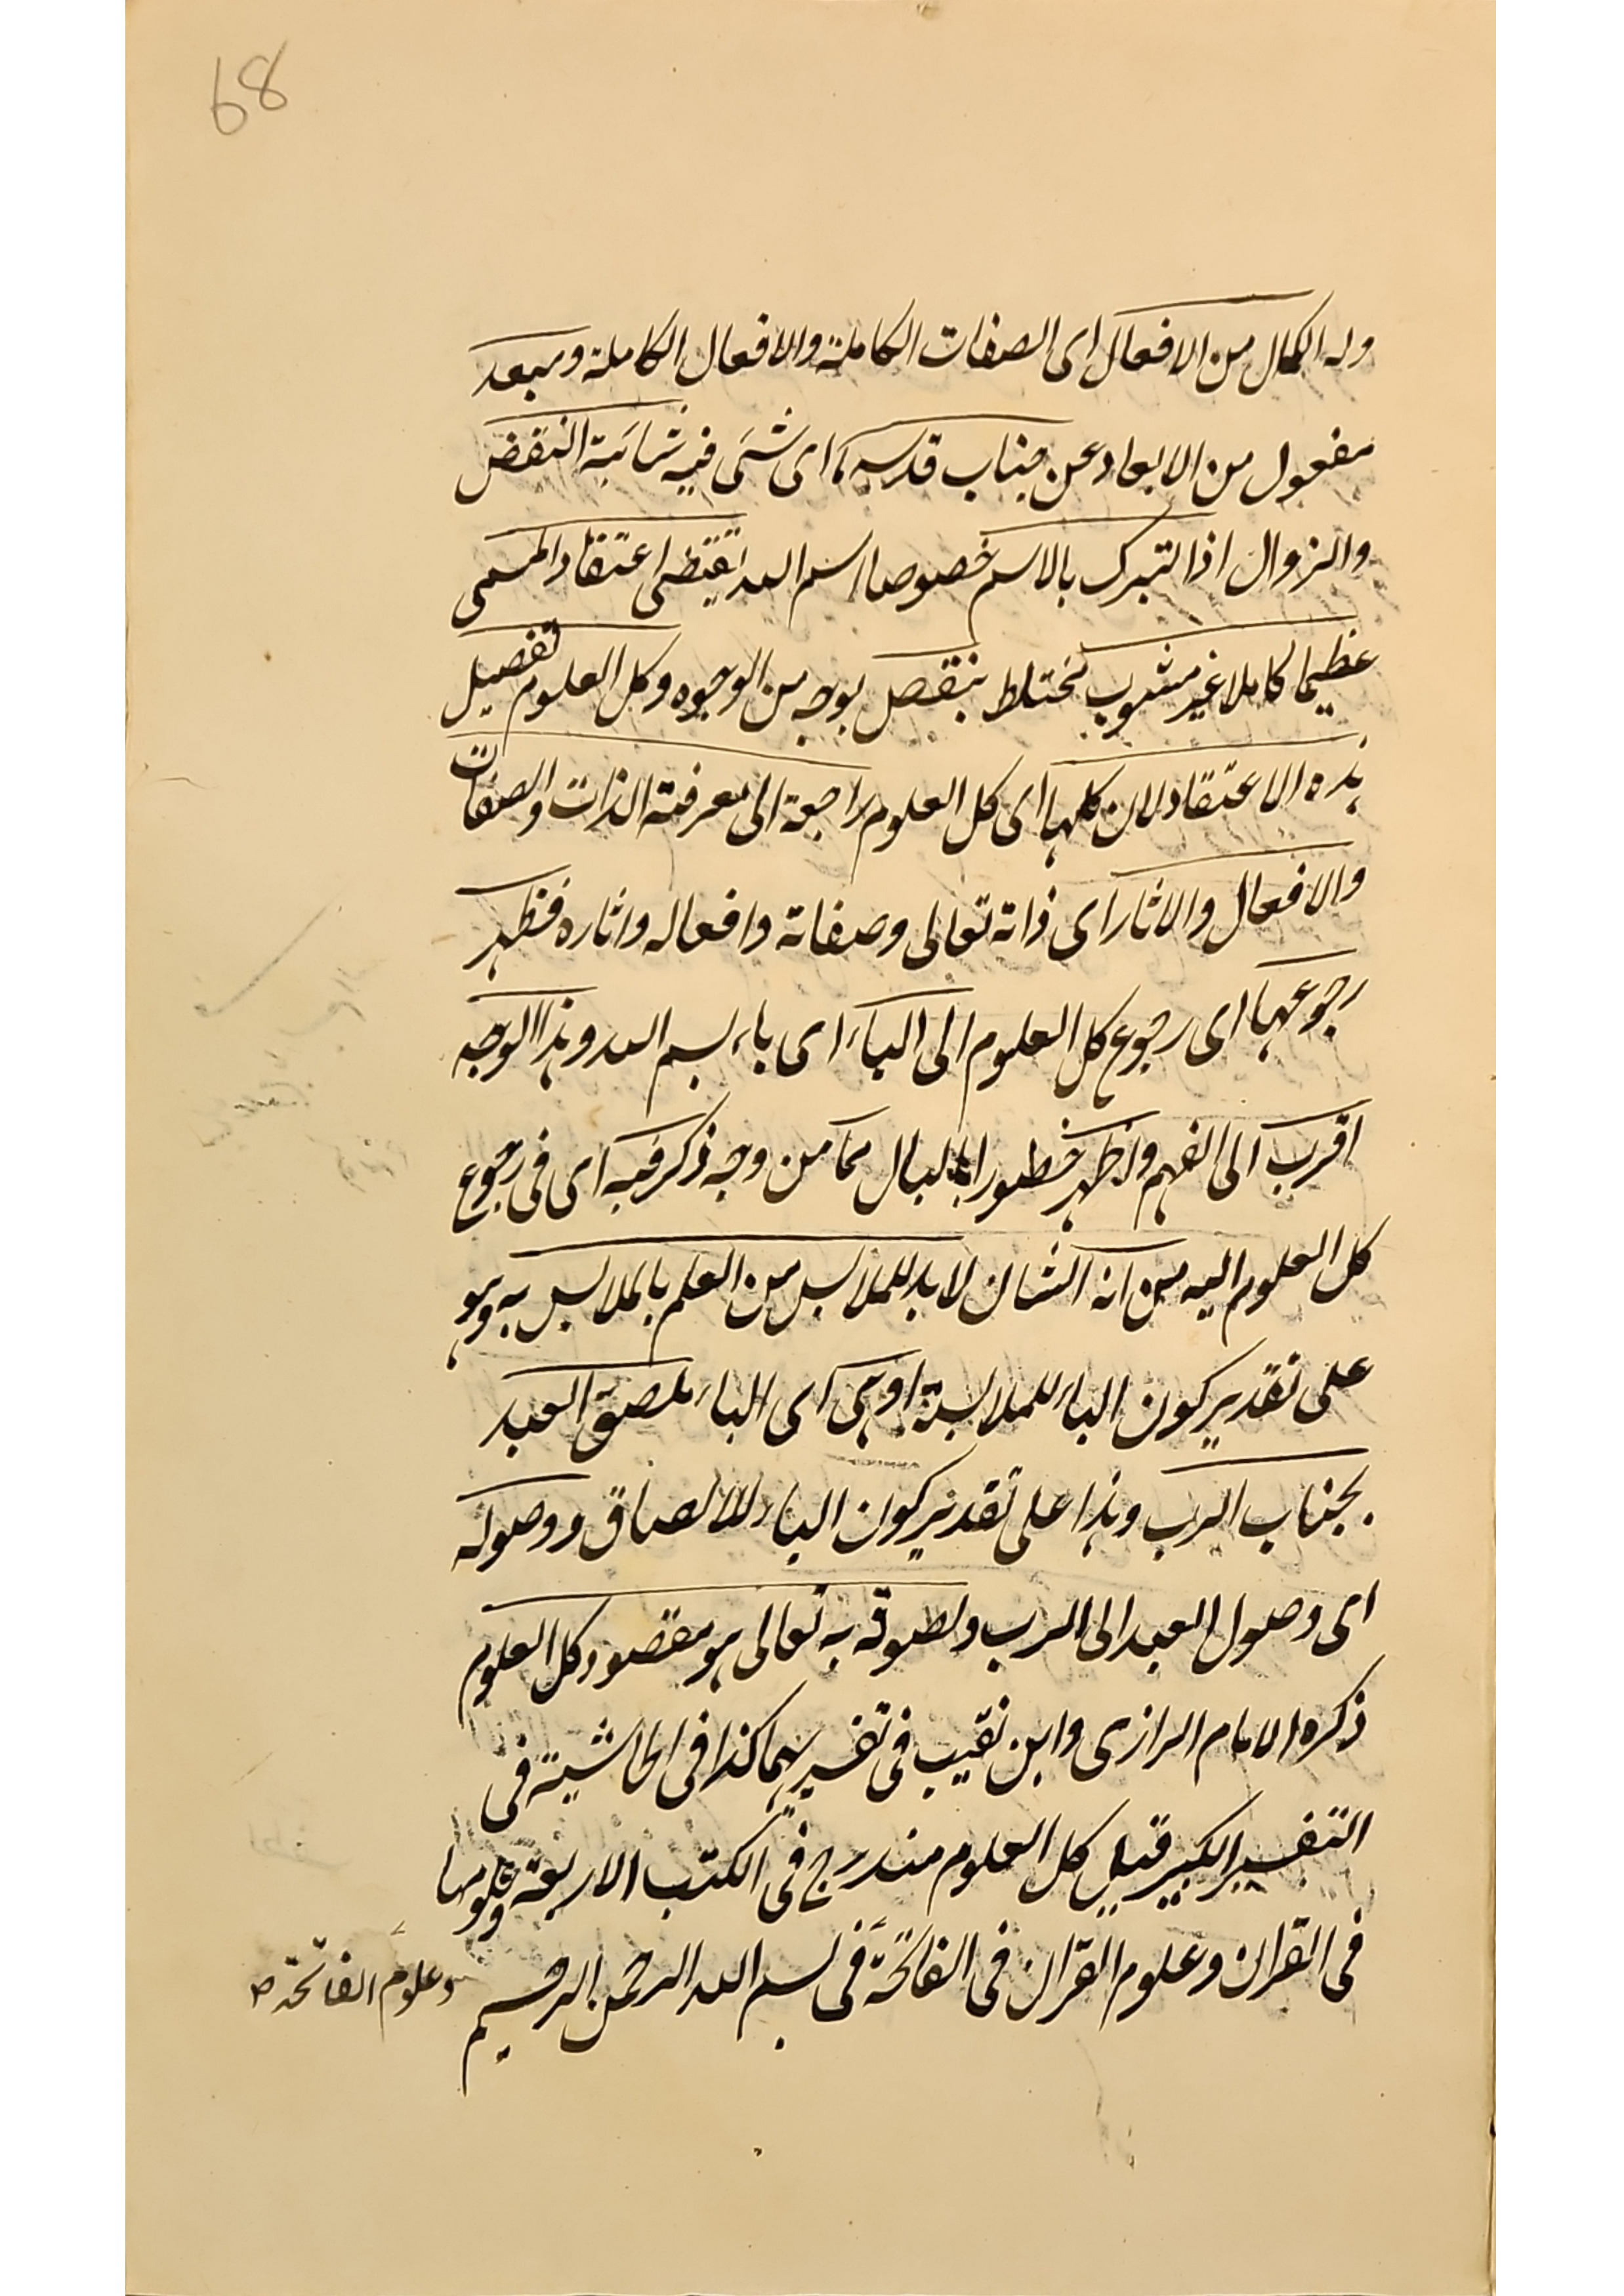 68
وله الكمال من الافعال اى الصفات الكاملة والافعال الكاملة ومبعد
مفعول من الابعاد عن جناب قدسه اى شئ فيه شائبة النقض
والزوال اذا لتبرك بالاسم خصوصا اسم الله يقتضى اعتقاد المسمى
عظيما كاملا غير مشوب مختلط بنقص بوجه من الوجوه وكل العلوم تفصيل
هذه الاعتقاد لان كلها اى كل العلوم راجعة الى معرفة الذات والصفات
والافعال والاثار اى ذاته تعالى وصفاته وافعاله واثاره فظهر
رجوعها اى رجوع كل العلوم الى الباء اى باء بسم الله وهذا الوجه
اقرب الى الفهم واظهر خطورا بالبال مما من وجه ذكر فيه اى فى رجوع
كل العلوم اليه من انه الشان لا بد للملابس من العلم بالملابس به وهو
على تقدير كون الباء للملابسة او هى اى الباء ملصق العبد
بجناب الرب وهذا على تقدير كون الباء للالصاق ووصوله
اى وصول العبد الى الرب ولصوقه به تعالى هو مقصود كل العلوم
ذكره الامام الرازى وابن نقيب فى تفسيرهما كذا فى الحاشية فى
التفسير الكبير قيل كل العلوم مندرج فى الكتب الاربعة وعلومها
فى القران وعلوم القران فى الفاتحة فى بسم الله الرحمن الرحيم
وعلوم الفاتحة صح